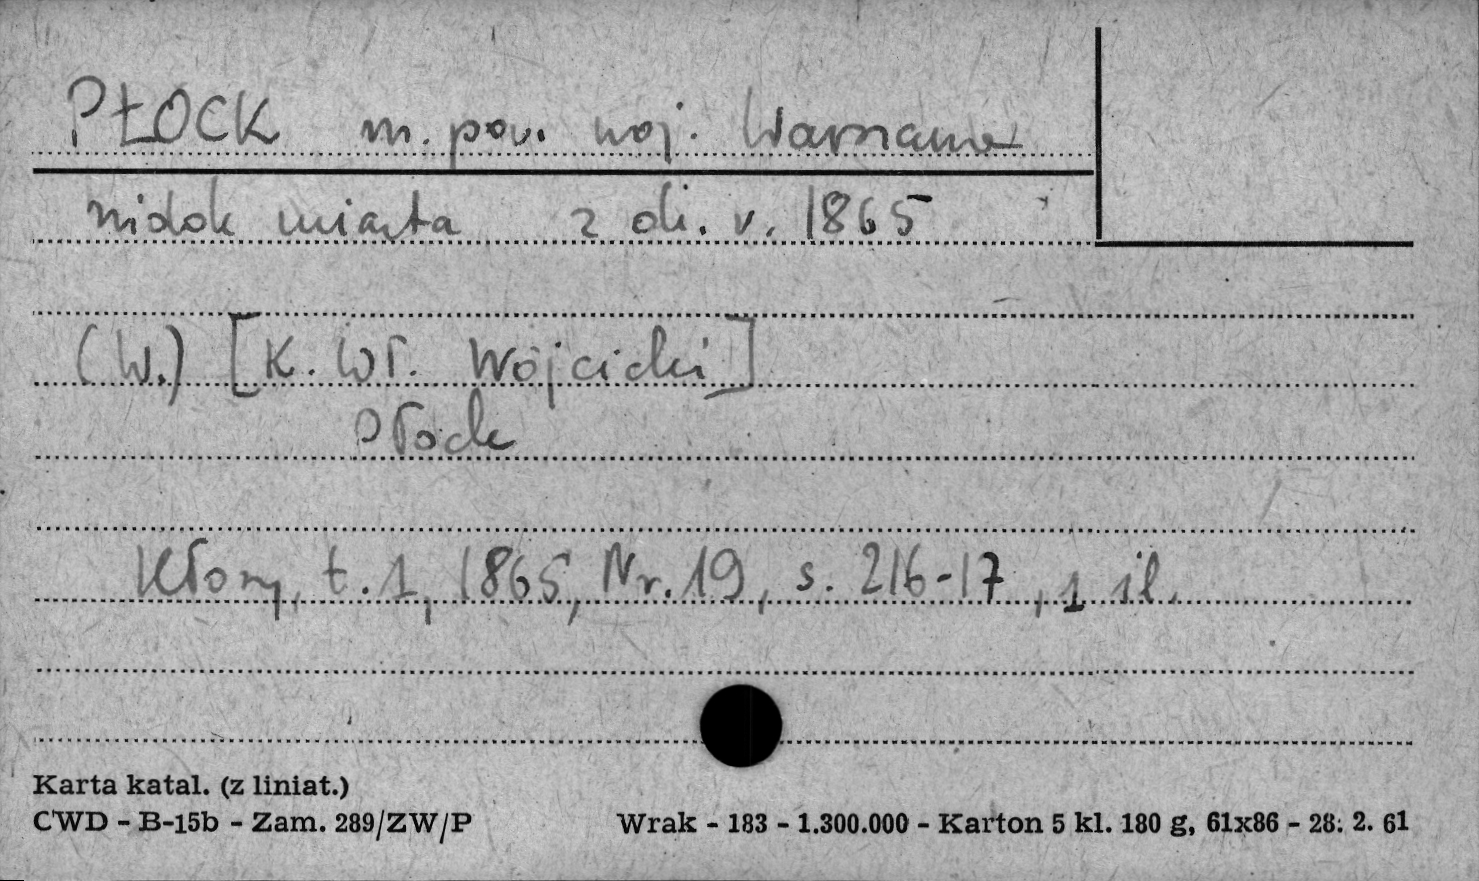 PŁOCK m. pow. woj. Warszawa
widok miasta z ok. r. 1865
(W.) [K. Wł. Wójcicki]
Płock
Kłosy, t. 1, 1865, Nr. 19, s. 216-17, 1 il.
Karta katal. (z liniat.)
CWD - B-15b - Zam. 289/ZW/P Wrak - 183 - 1.300.000 - Karton 5 kl. 180 g, 61x86 - 28. 2. 61